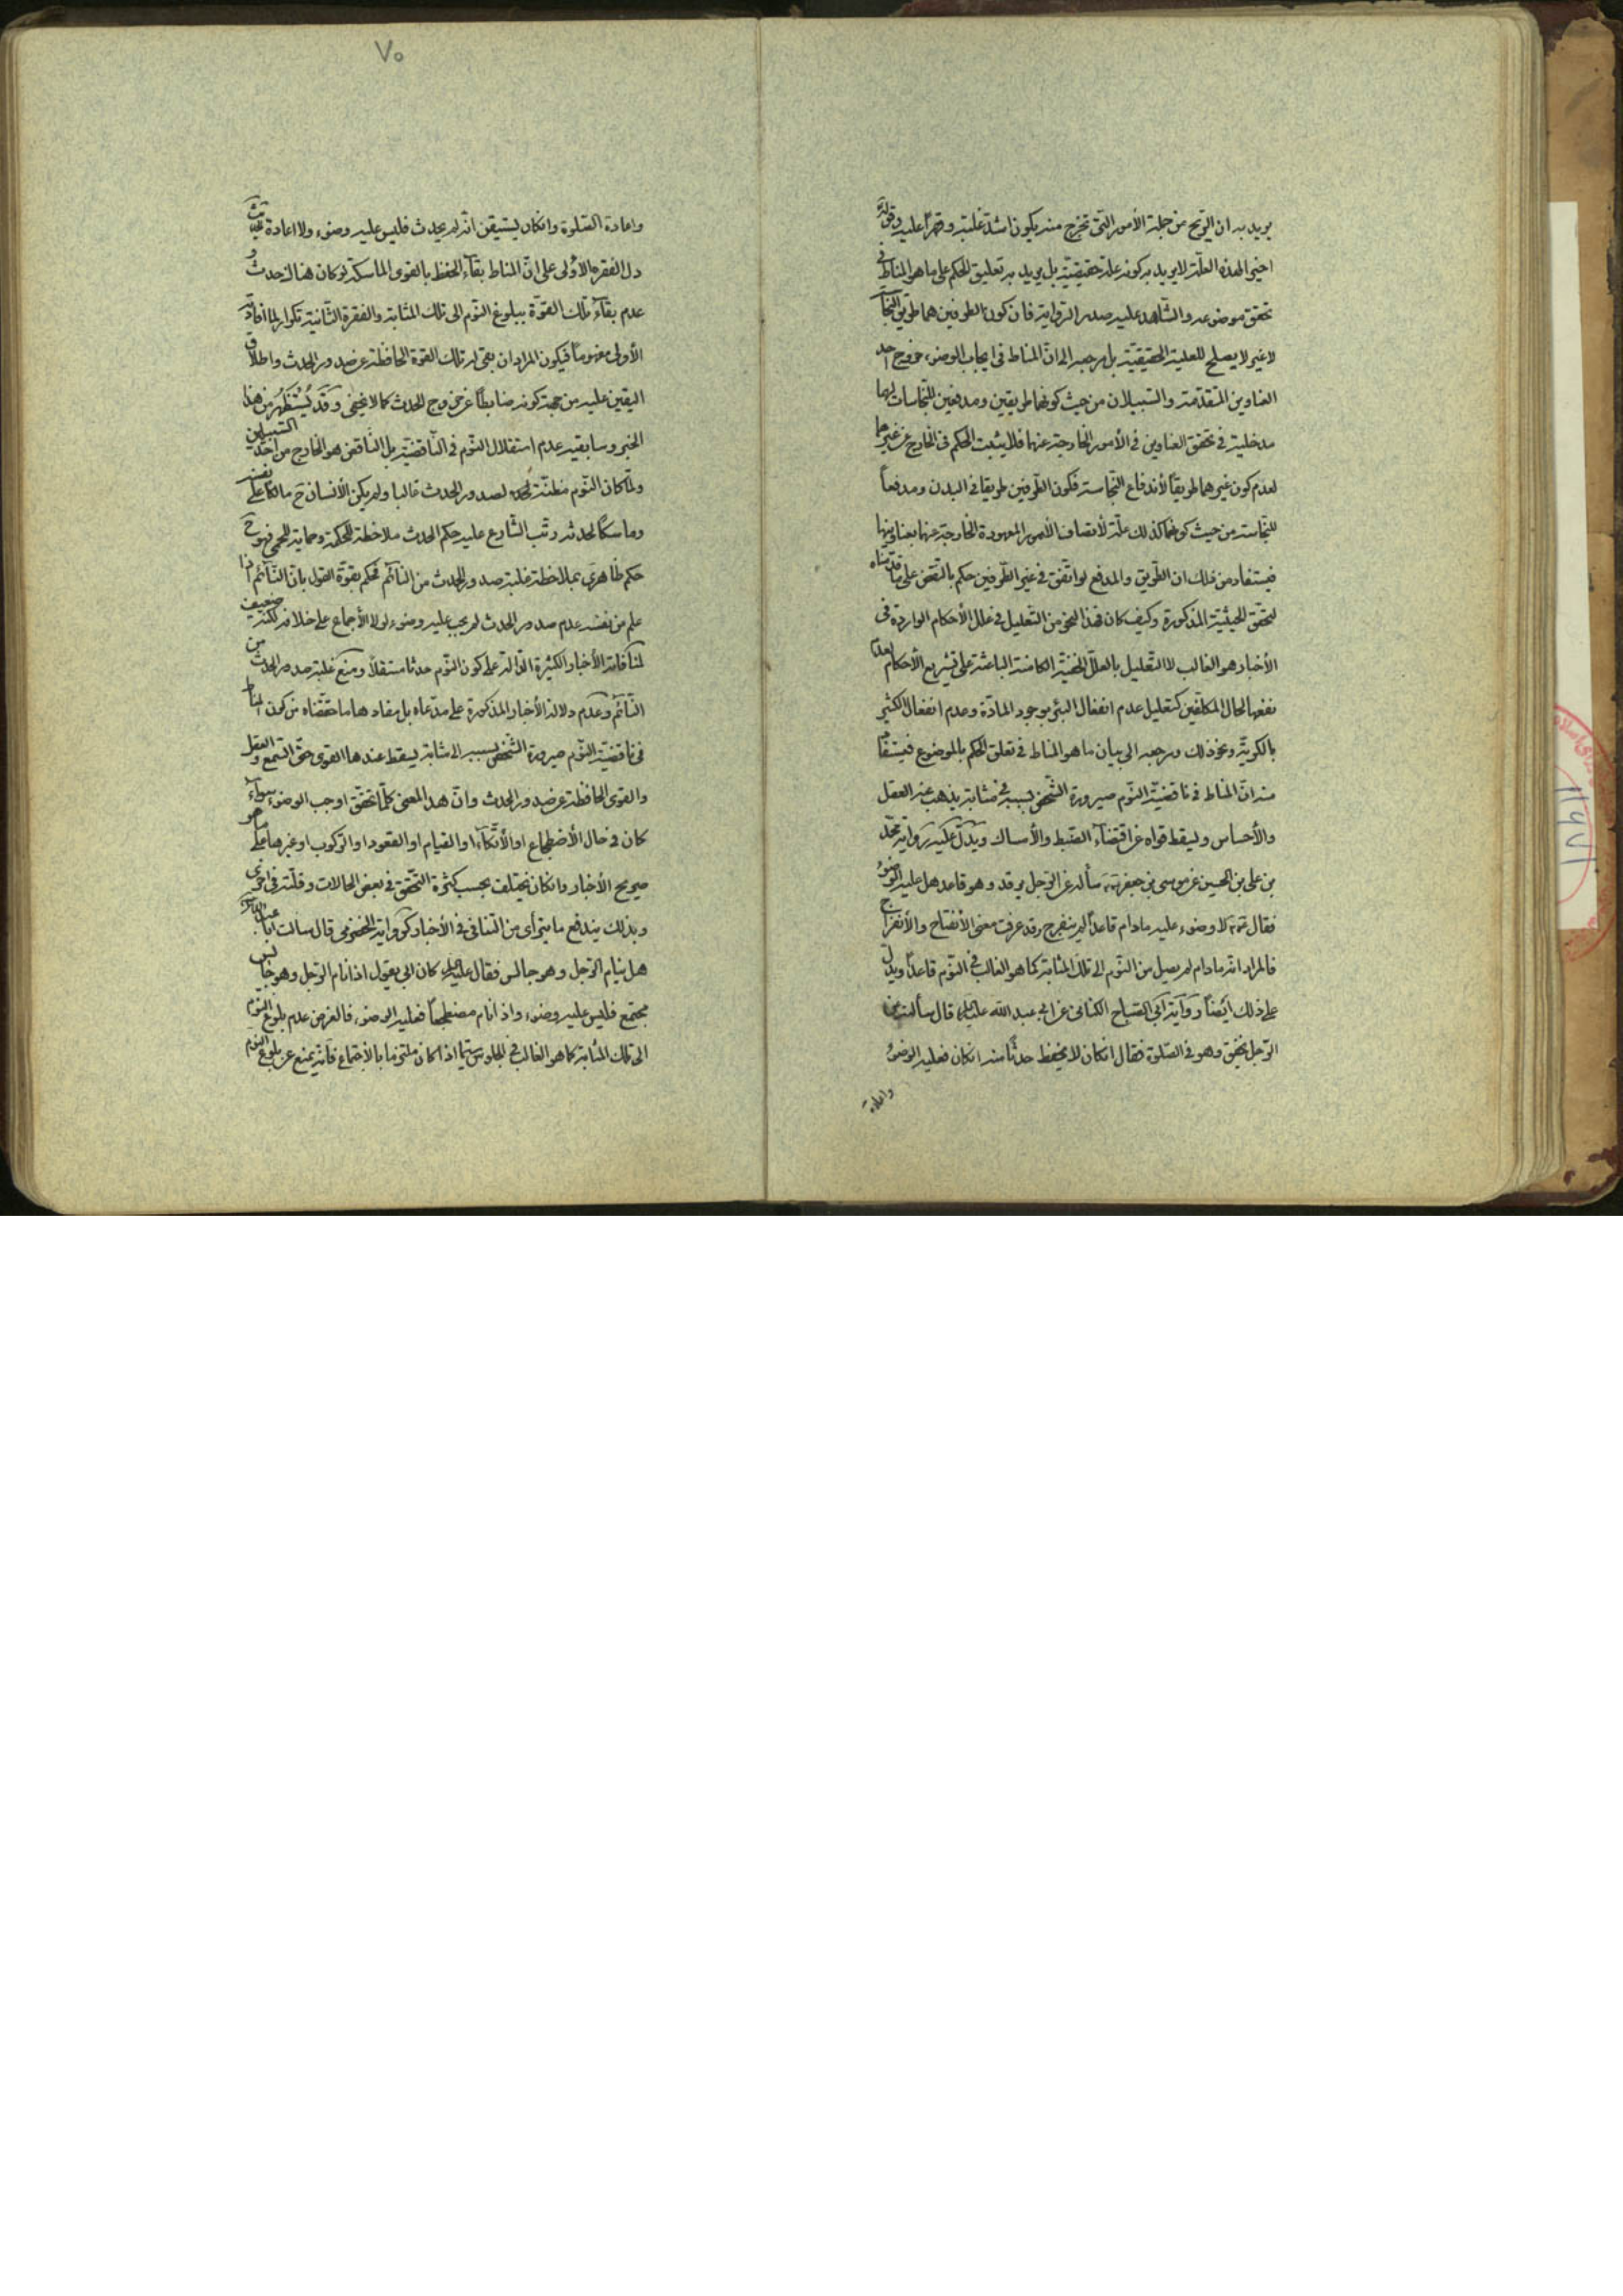 يريد به ان الريح من جملة الأمور التى تخرج منه يكون اشد غلبة وقهرا عليه وقوله
اخيرا لهذه العلة لا يريد به كونه علة حقيقية بل يريد به تعليق الحكم على ما هو المناط فى
تحقق موضوعه والشاهد عليه صدر الرواية فان كون الطرفين هما طريق النجاسة
لا غير لا يصلح للعلية الحقيقية بل مرجعه الى ان المناط فى ايجاب الوضوء خروج احد
العناوين المتقدمة والسبيلان من حيث كونهما طريقين ومدفعين للنجاسات لهما
مدخلية فى تحقق العناوين فى الأمور الخارجة عنهما فلا يثبت الحكم فى الخارج عن غيرهما
لعدم كون غيرهما طريقا لأندفاع النجاسة فكون الطرفين طريقا فى البدن ومدفعا
للنجاسة من حيث كونهما كذلك علة لأتصاف الأمور المعهودة الخارجة عنهما بعناوينها
فيستفاد من ذلك ان الطريق والمدفع لو اتفق فى غير الطرفين حكم بالنقض على ما قدمناه
لتحقق الحيثية المذكورة وكيف كان فهذا النحو من التعليل فى علل الأحكام الواردة فى
الأخبار هو الغالب لا التعليل بالعلل الخفية الكامنة الباعثة على تشريع الأحكام لعدم
نفعها لحال المكلفين كتعليل عدم انفعال البئر بوجود المادة وعدم انفعال الكثير
بالكرية ونحو ذلك ومرجعه الى بيان ما هو المناط فى تعلق الحكم بالموضوع فيستفاد
منه ان المناط فى ناقضية النوم صيرورة الشخص بسببه فى مثابة يذهب عنه العقل
والأحساس ويسقط قواه عن اقتضاء الضبط والأمساك ويدل عليه رواية محمد
بن على بن الحسين عن موسى بن جعفر سأله عن الرجل يرقد وهو قاعد هل عليه الوضوء
فقال لا وضوء عليه ما دام قاعدا لم ينفرج وقد عرفت معنى الأنفتاح والأنفراج
فالمراد انه ما دام لم يصل من النوم الى تلك المثابة كما هو الغالب فى النوم قاعدا ويدل
على ذلك ايضا رواية ابى الصباح الكنانى عن ابى عبد الله عليه السلام قال سألته عن
الرجل يخفق وهو فى الصلوة فقال انكان لا يحفظ حدثا منه انكان فعليه الوضوء
واعادة
٧٥
واعادة الصلوة وانكان يستيقن انه لم يحدث فليس عليه وضوء ولا اعادة حيث
دل الفقره الأولى على ان المناط بقاء الحفظ بالقوى الماسكة لو كان هناك حدث و
عدم بقاء تلك القوة ببلوغ النوم الى تلك المثابة والفقرة الثانية تكرار لما افادته
الأولى مفهوما فيكون المراد ان بقى له تلك القوة الحافظة عن صدور الحدث واطلاق
اليقين عليه من جهة كونه ضابطا عن خروج الحدث كما لا يخفى وقد يستظهر من هذا
الخبر وسابقيه عدم استقلال النوم فى الناقضية بل الناقض هو الخارج من احد السبيلين
ولما كان النوم مظنة لصدور الحدث غالبا ولم يكن الأنسان ح مالكا على نفسه
وماسكا لحدثه رتب الشارع عليه حكم الحدث ملاحظة للحكمة وحماية للحمى فهو ح
حكم ظاهرى بملاحظة غلبة صدور الحدث من النائم فحكم بقوة القول بان النائم اذا
علم من نفسه عدم صدور الحدث لم يجب عليه وضوء لولا الأجماع على خلافه لكنه ضعيف
لمنافاته الأخبار الكثيرة الدالة على كون النوم حدثا مستقلا ومنع غلبة صدور الحدث من
النائم وعدم دلالة الأخبار المذكورة على مدعاه بل مفادها ما حققناه من كون المناط
فى ناقضية النوم صيرورة الشخص بسببه الى مثابة يسقط عندها القوى حتى السمع والعقل
والقوى الحافظة عن صدور الحدث وان هذا المعنى كلما تحقق اوجب الوضوء سواء
كان فى حال الأضطجاع او الأتكاء او القيام او القعود او الركوب او غيرها على ما هو
صريح الأخبار وانكان يختلف بحسب كثرة التحقق فى بعض الحالات وقلته فى اخرى
وبذلك يندفع ما يترأى من التنافى فى الأخبار كرواية الحضرمى قال سألت ابا عبد الله
هل ينام الرجل وهو جالس فقال عليه السلام كان ابى يقول اذا نام الرجل وهو جالس
مجتمع فليس عليه وضوء واذا نام مضطجعا فعليه الوضوء فالغرض عدم بلوغ النوم
الى تلك المثابة كما هو الغالب فى الجلوس سيما اذا كان ملتزما بالأجتماع فانه يمنع عن بلوغ النوم